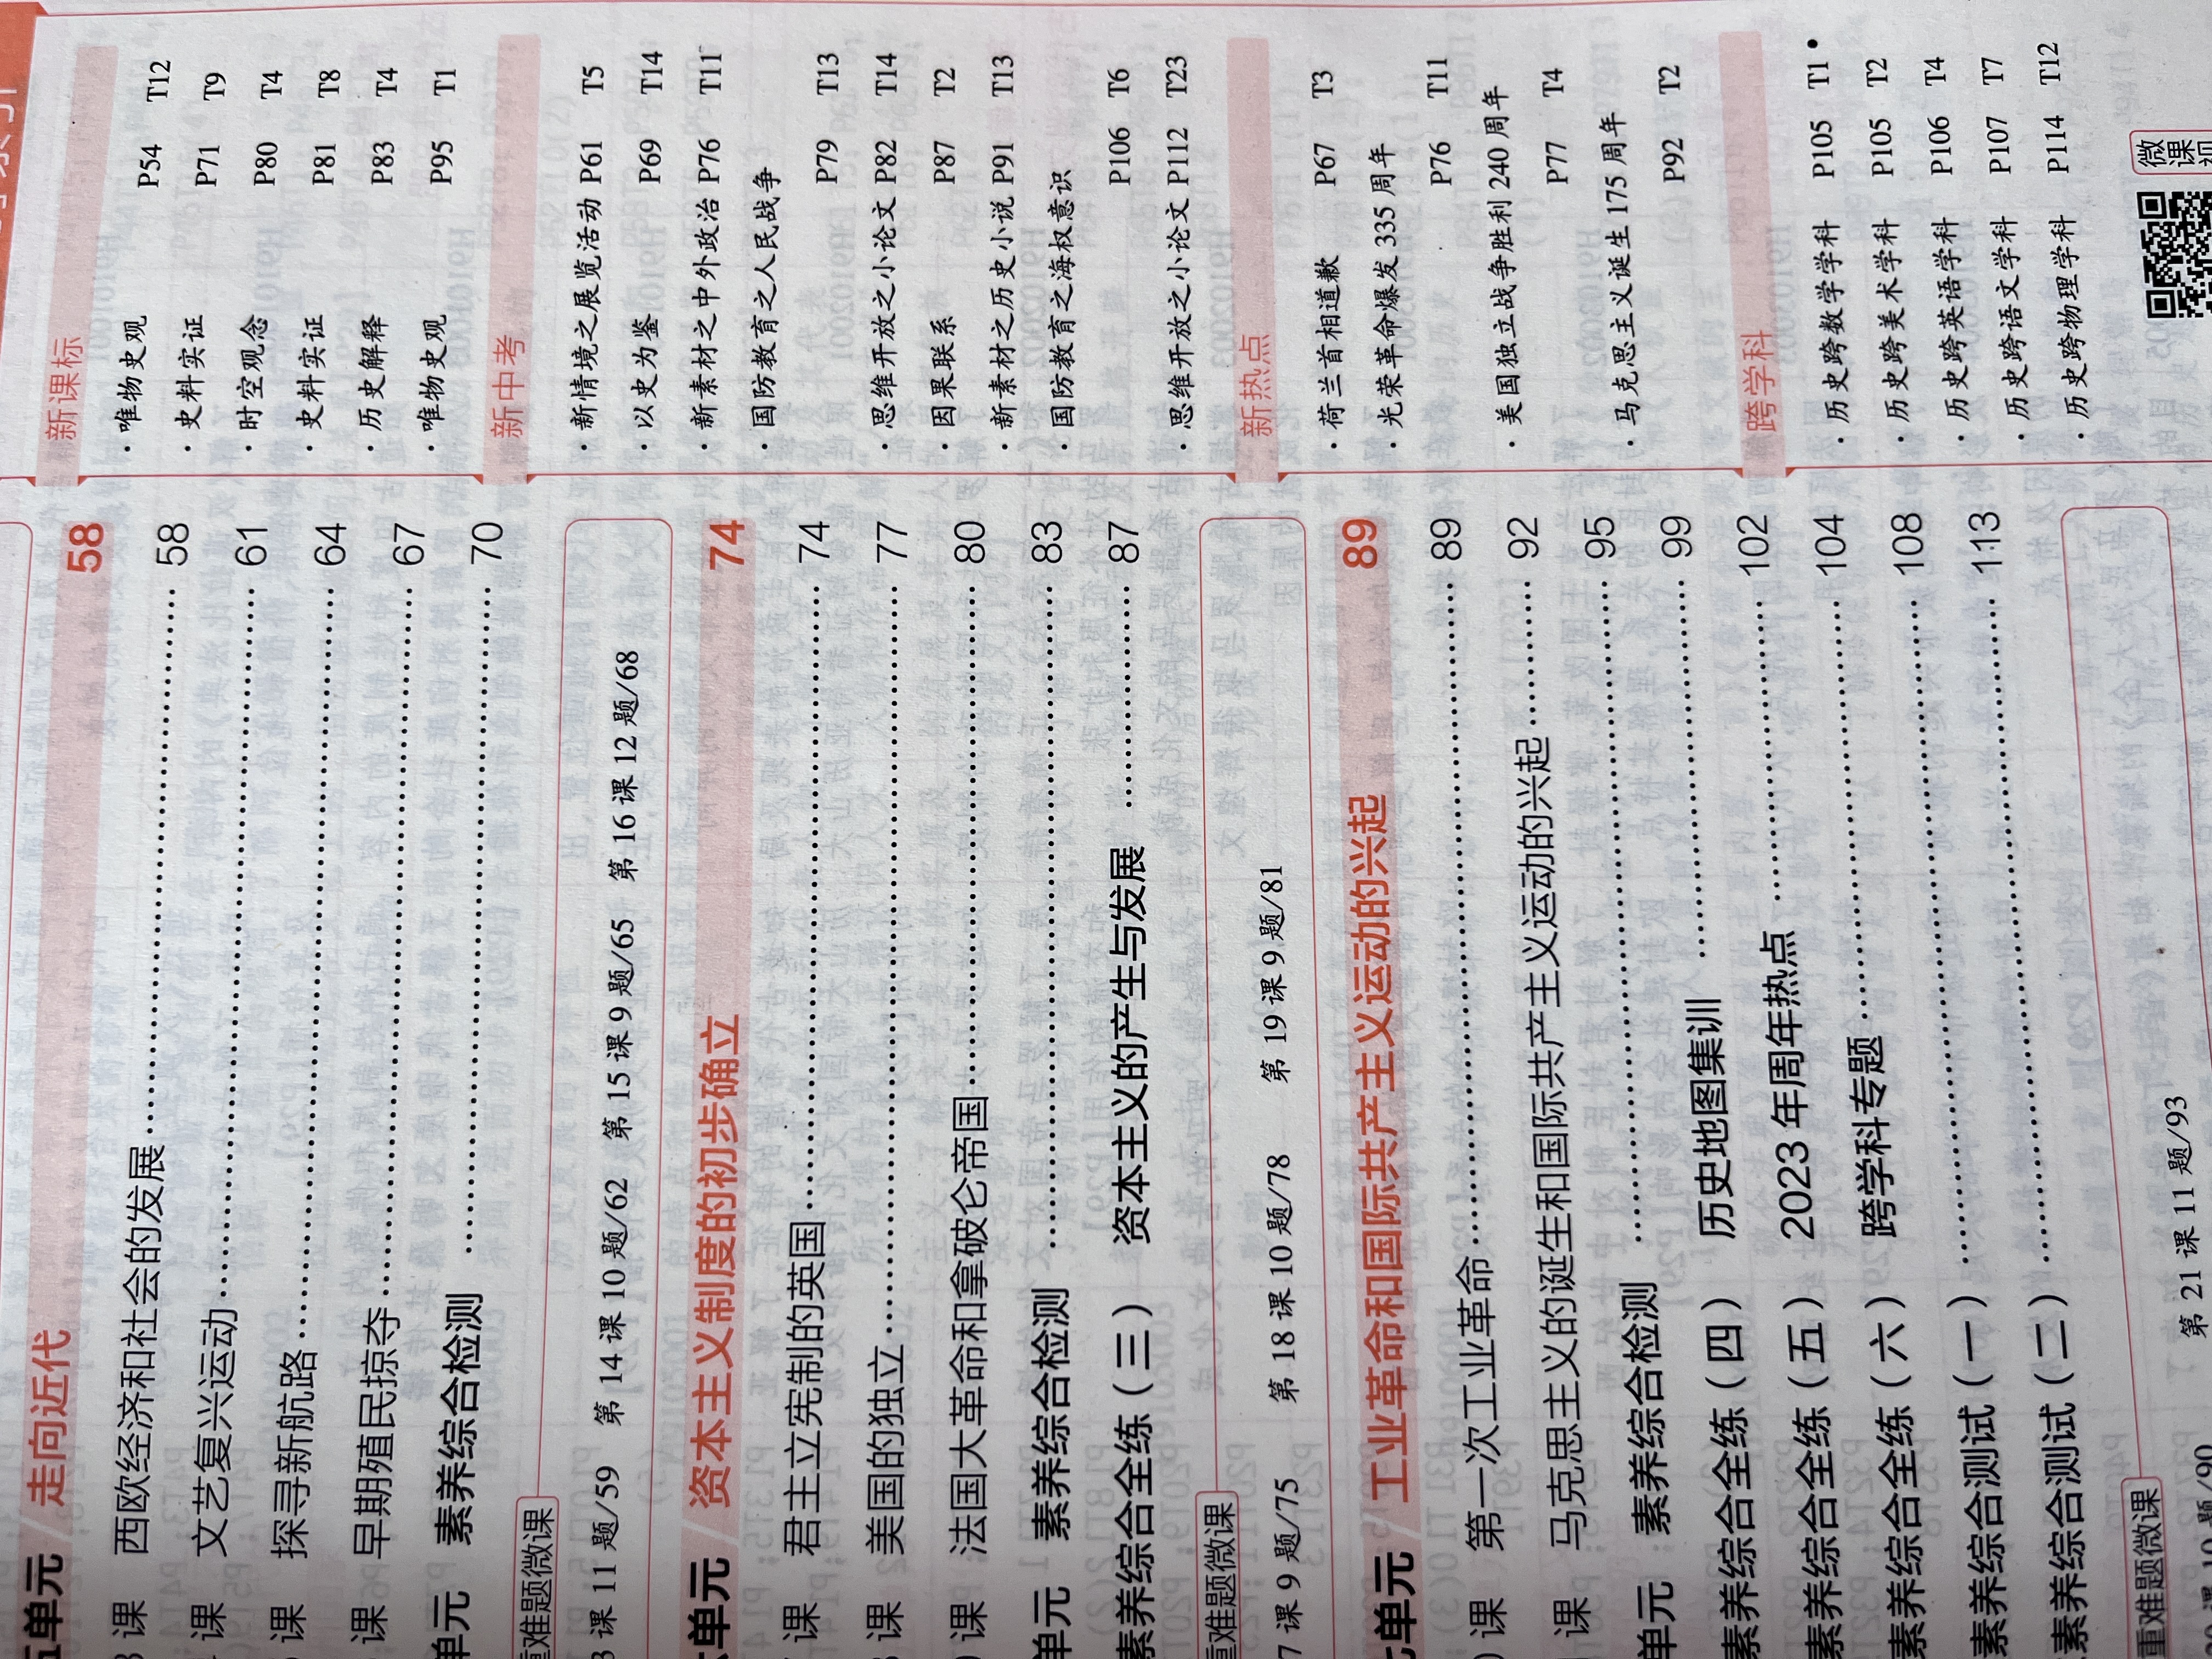 五单元 / 走向近代 58
3 课 西欧经济和社会的发展 58
课 文艺复兴运动 61
课 探寻新航路 64
课 早期殖民掠夺 67
单元 素养综合检测 70
重难题微课
3 课 11 题/59 第 14 课 10 题/62 第 15 课 9 题/65 第 16 课 12 题/68
单元 / 资本主义制度的初步确立 74
课 君主立宪制的英国 74
课 美国的独立 77
课 法国大革命和拿破仑帝国 80
单元 素养综合检测 83
素养综合全练（三） 资本主义的产生与发展 87
重难题微课
7 课 9 题/75 第 18 课 10 题/78 第 19 课 9 题/81
单元 / 工业革命和国际共产主义运动的兴起 89
课 第一次工业革命 89
课 马克思主义的诞生和国际共产主义运动的兴起 92
单元 素养综合检测 95
素养综合全练（四） 历史地图集训 99
素养综合全练（五） 2023 年周年热点 102
素养综合全练（六） 跨学科专题 104
素养综合测试（一） 108
素养综合测试（二） 113
重难题微课
课 10 题/90 第 21 课 11 题/93
新课标
·唯物史观 P54 T12
·史料实证 P71 T9
·时空观念 P80 T4
·史料实证 P81 T8
·历史解释 P83 T4
·唯物史观 P95 T1
新中考
·新情境之展览活动 P61 T5
·以史为鉴 P69 T14
·新素材之中外政治 P76 T11
·国防教育之人民战争
P79 T13
·思维开放之小论文 P82 T14
·因果联系 P87 T2
·新素材之历史小说 P91 T13
·国防教育之海权意识
P106 T6
·思维开放之小论文 P112 T23
新热点
·荷兰首相道歉 P67 T3
·光荣革命爆发 335 周年
P76 T11
·美国独立战争胜利 240 周年
P77 T4
·马克思主义诞生 175 周年
P92 T2
跨学科
·历史跨数学学科 P105 T1
·历史跨美术学科 P105 T2
·历史跨英语学科 P106 T4
·历史跨语文学科 P107 T7
·历史跨物理学科 P114 T12
微课